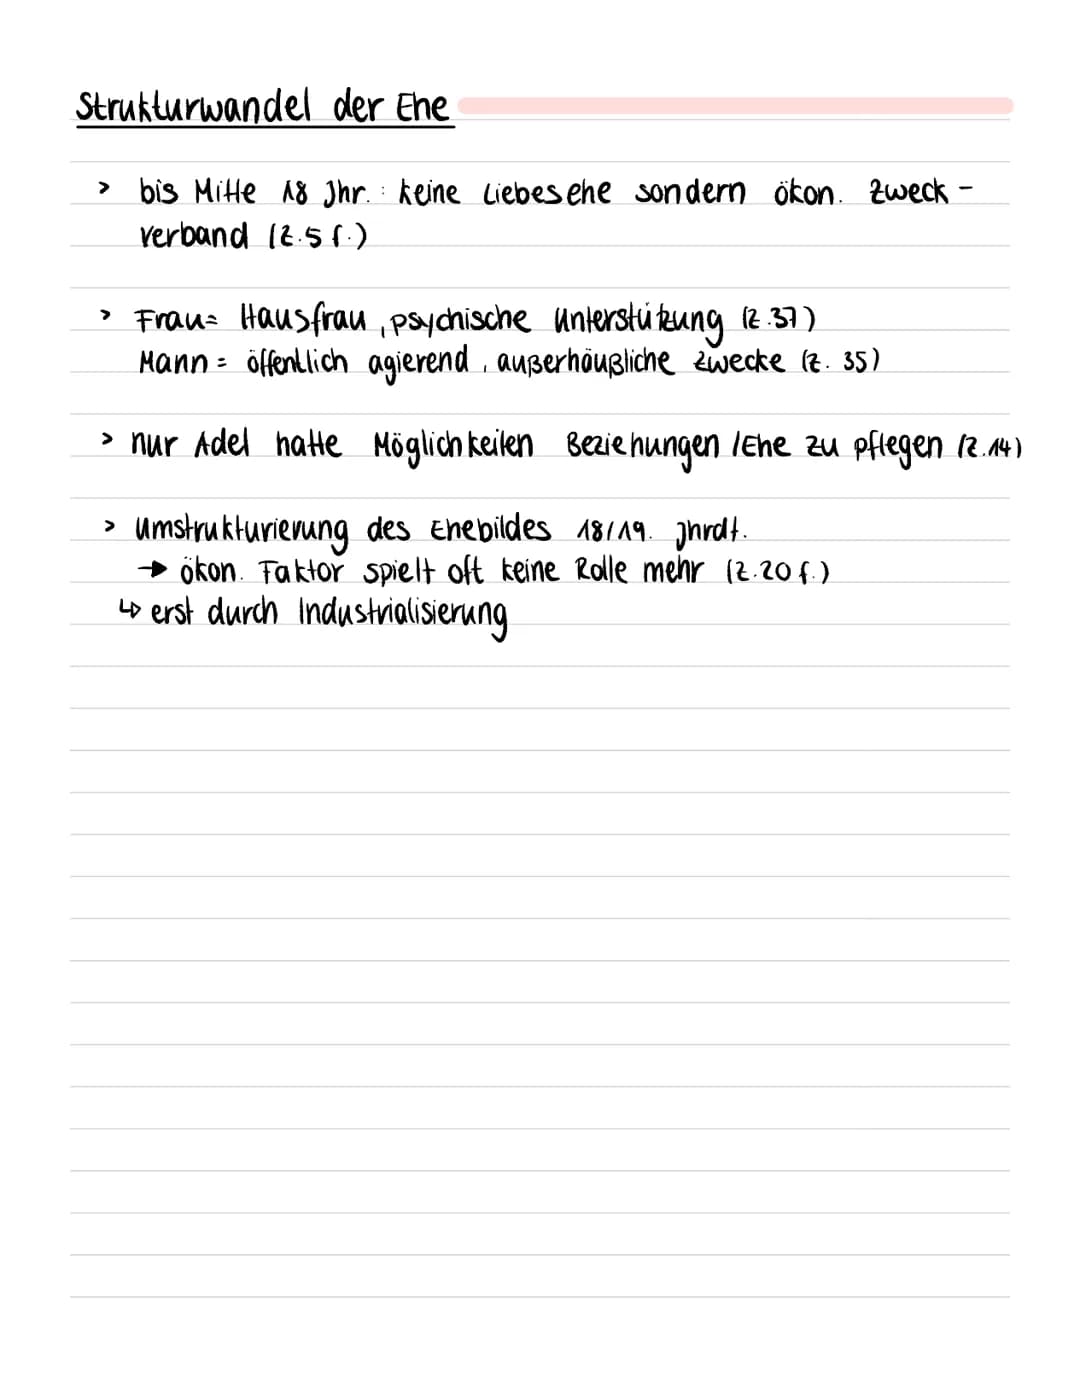 Strukturwandel der Ehe
> bis Mitte 18 Jhr.: keine Liebesehe sondern ökon. Zweck-
verband (Z.5 f.)
> Frau= Hausfrau, psychische Unterstützung (Z.37)
Mann= öffentlich agierend, außerhäußliche Zwecke (Z. 35)
> nur Adel hatte Möglichkeiten Beziehungen /Ehe zu pflegen (Z.14)
> Umstrukturierung des Ehebildes 18/19. Jhrdt.
→ ökon. Faktor spielt oft keine Rolle mehr (Z.20 f.)
↳ erst durch Industrialisierung